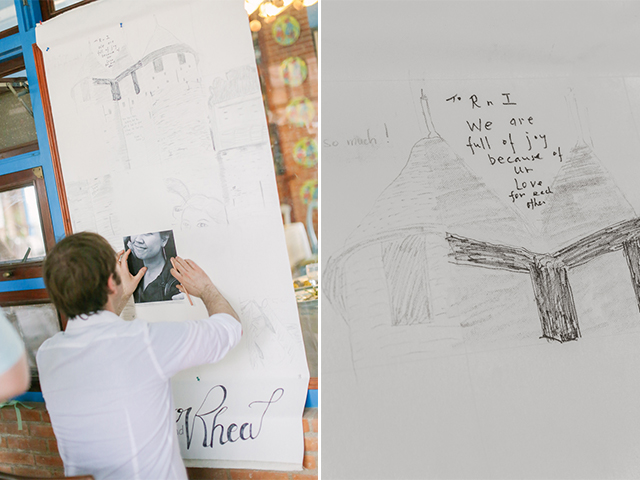 Rhea
so much!
To R n I
We are
full of joy
because of
ur
Love
for each
other